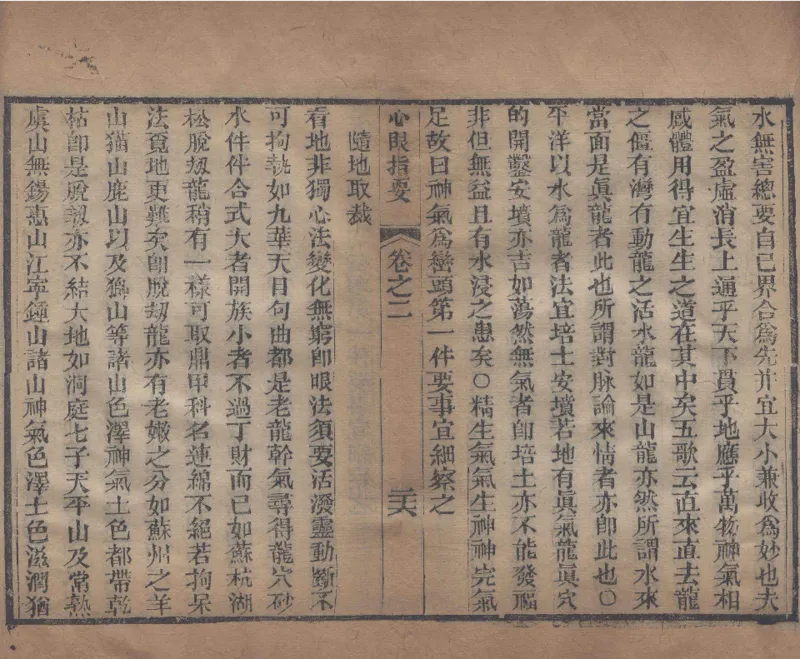 水無害總要自己界合爲先幷宜大小兼收爲妙也夫
氣之盈虛消長上通乎天下貫乎地應乎萬物神氣相
感體用得宜生生之道在其中矣五歌云直來直去龍
之僵有灣有動龍之活水龍如是山龍亦然所謂水來
當面是眞龍者此也所謂對脉論來情者亦卽此也〇
平洋以水爲龍者法宜培土安墳若地有眞氣龍眞穴
的開鑿安墳亦吉如蕩然無氣者卽培土亦不能發福
非但無益且有水浸之患矣〇精生氣氣生神神完氣
足故曰神氣爲巒頭第一件要事宜細察之
心眼指要
卷之二
二六
隨地取裁
看地非獨心法變化無窮卽眼法須要活潑靈動斷不
可拘執如九華天目句曲都是老龍幹氣尋得龍穴砂
水件件合式大者開族小者不過丁財而已如蘇杭湖
松脫刼龍稍有一樣可取鼎甲科名連綿不絕若拘呆
法覔地更難矣卽脫刼龍亦有老嫩之分如蘇州之羊
山貓山鹿山以及獅山等諸山色澤神氣土色都帶乾
枯卽是脫刼亦不結大地如洞庭七子天平山及常熟
虞山無錫惠山江寧鍾山諸山神氣色澤土色滋潤猶